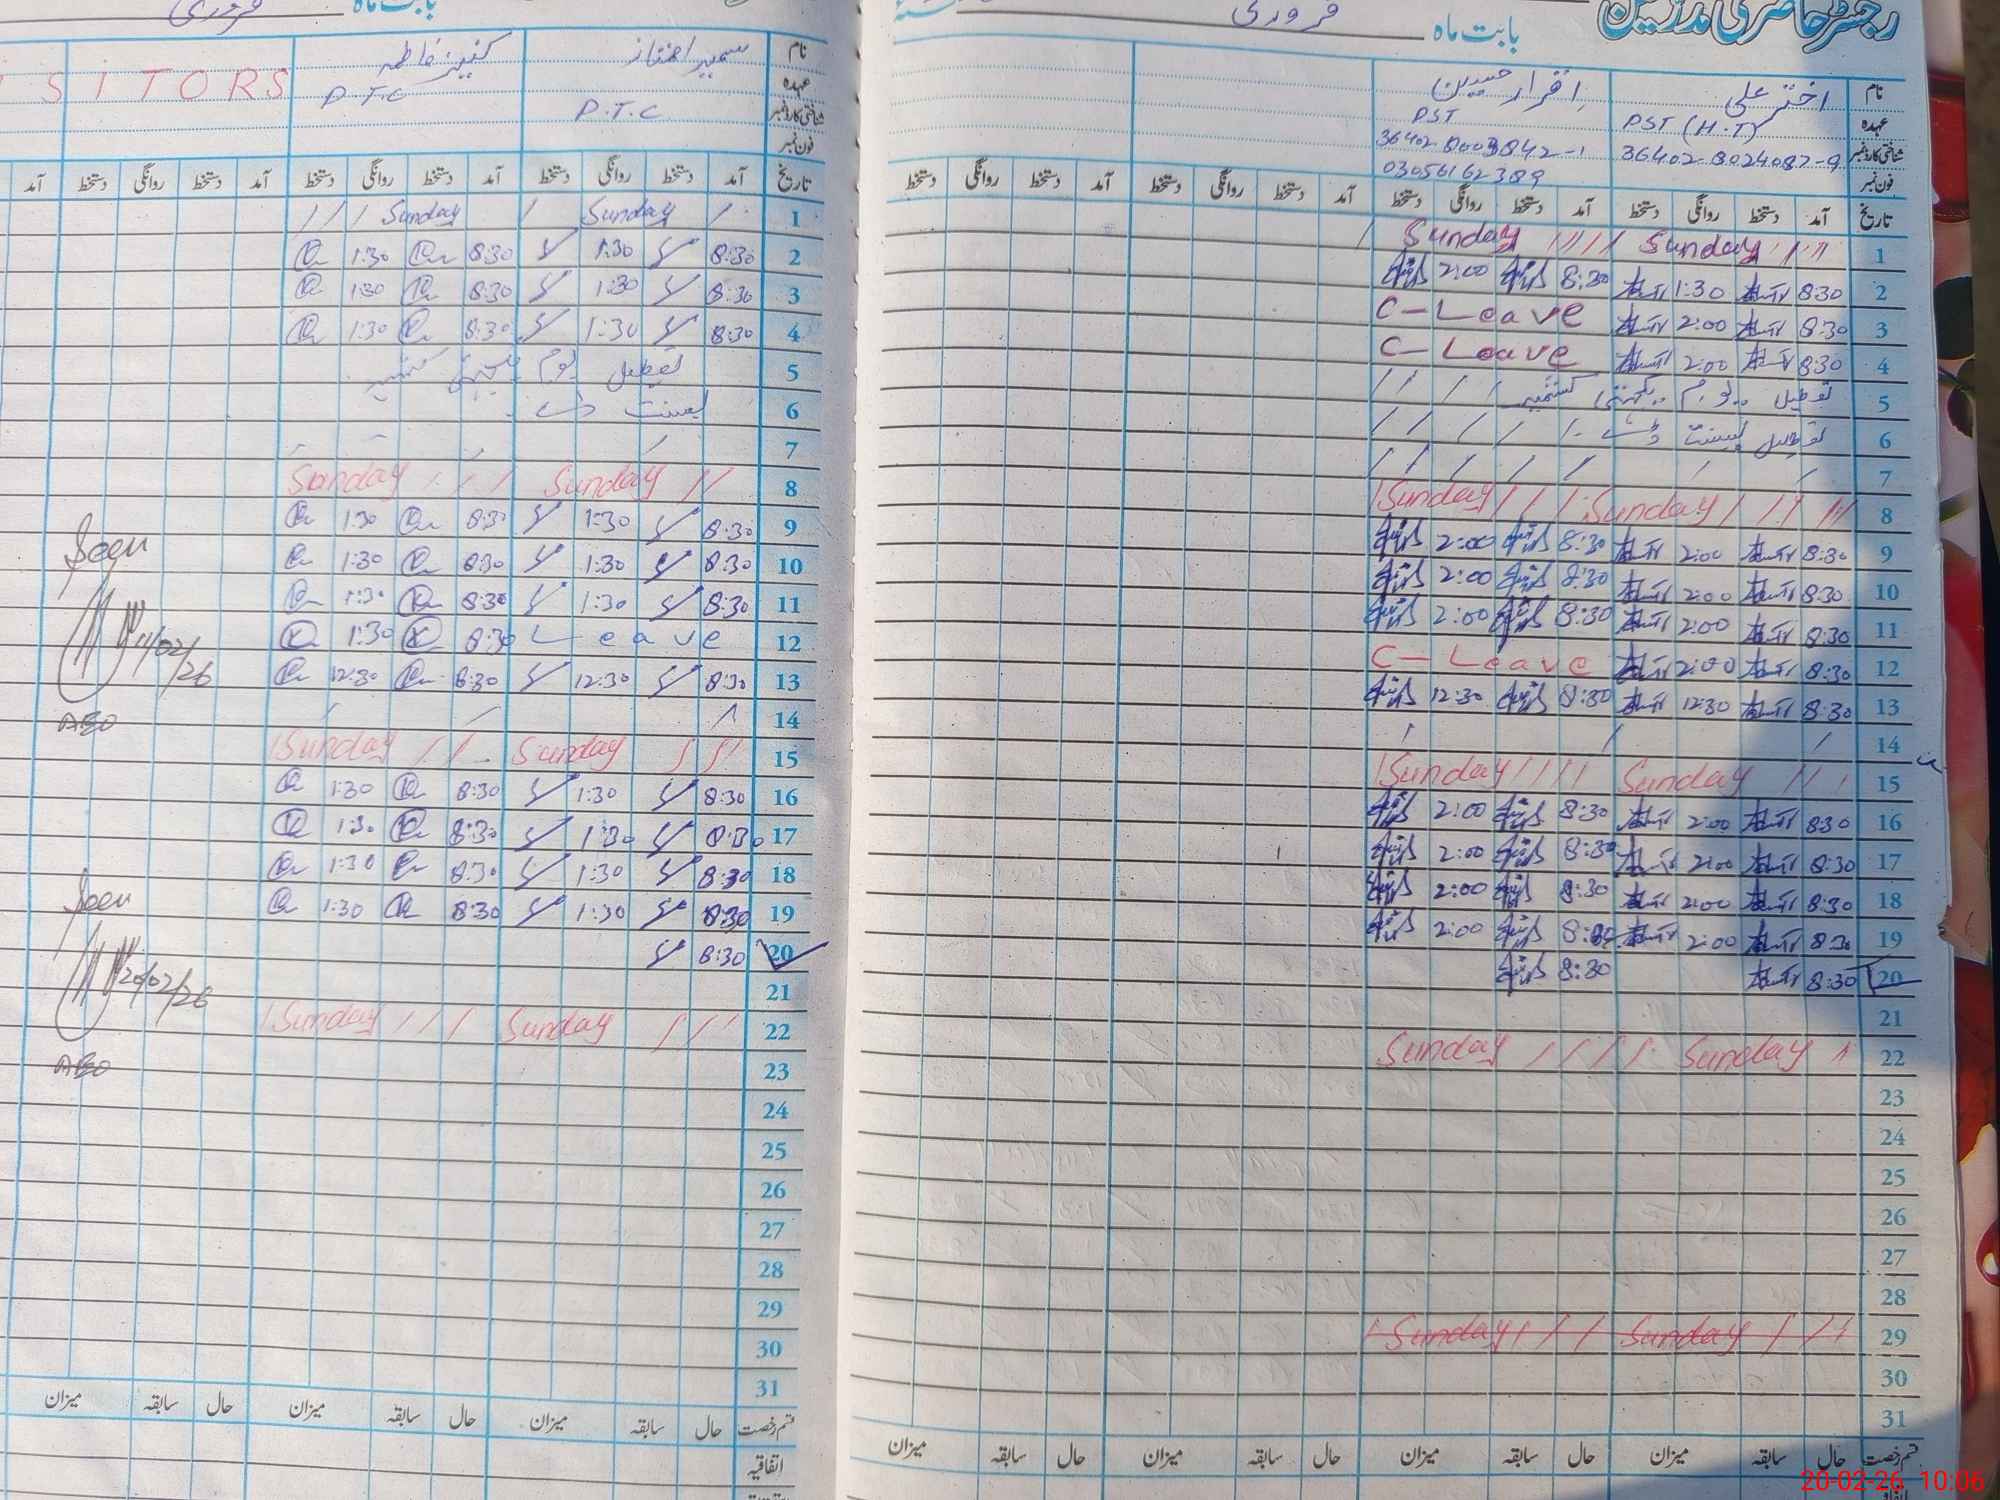 رجسٹر حاضری مدرسین
بابت ماہ فروری
نام اختر علی اقرار حسین
عہدہ PST (H.T) PST
شناختی کارڈ نمبر 36402-8024087-9 36402-8003842-1
فون نمبر 03056162389
تاریخ آمد دستخط روانگی دستخط آمد دستخط روانگی دستخط آمد دستخط روانگی دستخط آمد دستخط روانگی دستخط
1 Sunday Sunday
2 8:30 1:30 8:30 2:00
3 8:30 2:00 C-Leave
4 8:30 2:00 C-Leave
5 تعطیل یوم یکجہتی کشمیر
6 تعطیل بسنت ڈے
7
8 Sunday Sunday
9 8:30 2:00 8:30 2:00
10 8:30 2:00 8:30 2:00
11 8:30 2:00 8:30 2:00
12 8:30 2:00 C-Leave
13 8:30 12:30 8:30 12:30
14
15 Sunday Sunday
16 8:30 2:00 8:30 2:00
17 8:30 2:00 8:30 2:00
18 8:30 2:00 8:30 2:00
19 8:30 2:00 8:30 2:00
20 8:30 8:30
21
22 Sunday Sunday
23
24
25
26
27
28
29 Sunday Sunday
30
31
قسم رخصت حال سابقہ میزان حال سابقہ میزان حال سابقہ میزان حال سابقہ میزان
بابت ماہ فروری
نام کنیز فاطمہ
عہدہ P.T.C P.T.C
شناختی کارڈ نمبر
فون نمبر
SITORS
تاریخ آمد دستخط روانگی دستخط آمد دستخط روانگی دستخط آمد دستخط روانگی دستخط آمد
1 Sunday Sunday
2 8:30 1:30 8:30 1:30
3 8:30 1:30 8:30 1:30
4 8:30 1:30 8:30 1:30
5 تعطیل یوم یکجہتی کشمیر
6 بسنت ڈے
7
8 Sunday Sunday
9 8:30 1:30 8:30 1:30
10 8:30 1:30 8:30 1:30
11 8:30 1:30 8:30 1:30
12 Leave 8:30 1:30
13 8:30 12:30 8:30 12:30
14
15 Sunday Sunday
16 8:30 1:30 8:30 1:30
17 8:30 1:30 8:30 1:30
18 8:30 1:30 8:30 1:30
19 8:30 1:30 8:30 1:30
20 8:30
21
22 Sunday Sunday
23
24
25
26
27
28
29
30
31
قسم رخصت حال سابقہ میزان حال سابقہ میزان حال سابقہ میزان
اتفاقیہ
Seen
11/02/26
AEO
Seen
20/02/26
AEO
20-02-26 10:06